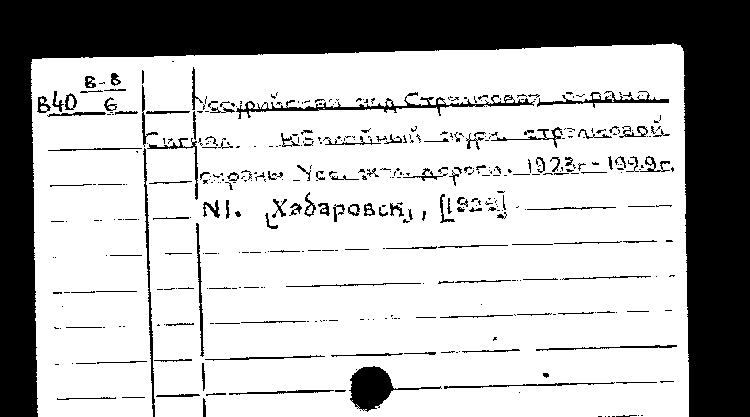 В-8
В40 6
Уссурийская жд Стрелковая охрана.
Сигнал. Юбилейный журн. стрелковой
охраны Усс. жел. дороги. 1923г-1929г.
N1. [Хабаровск], [1929]